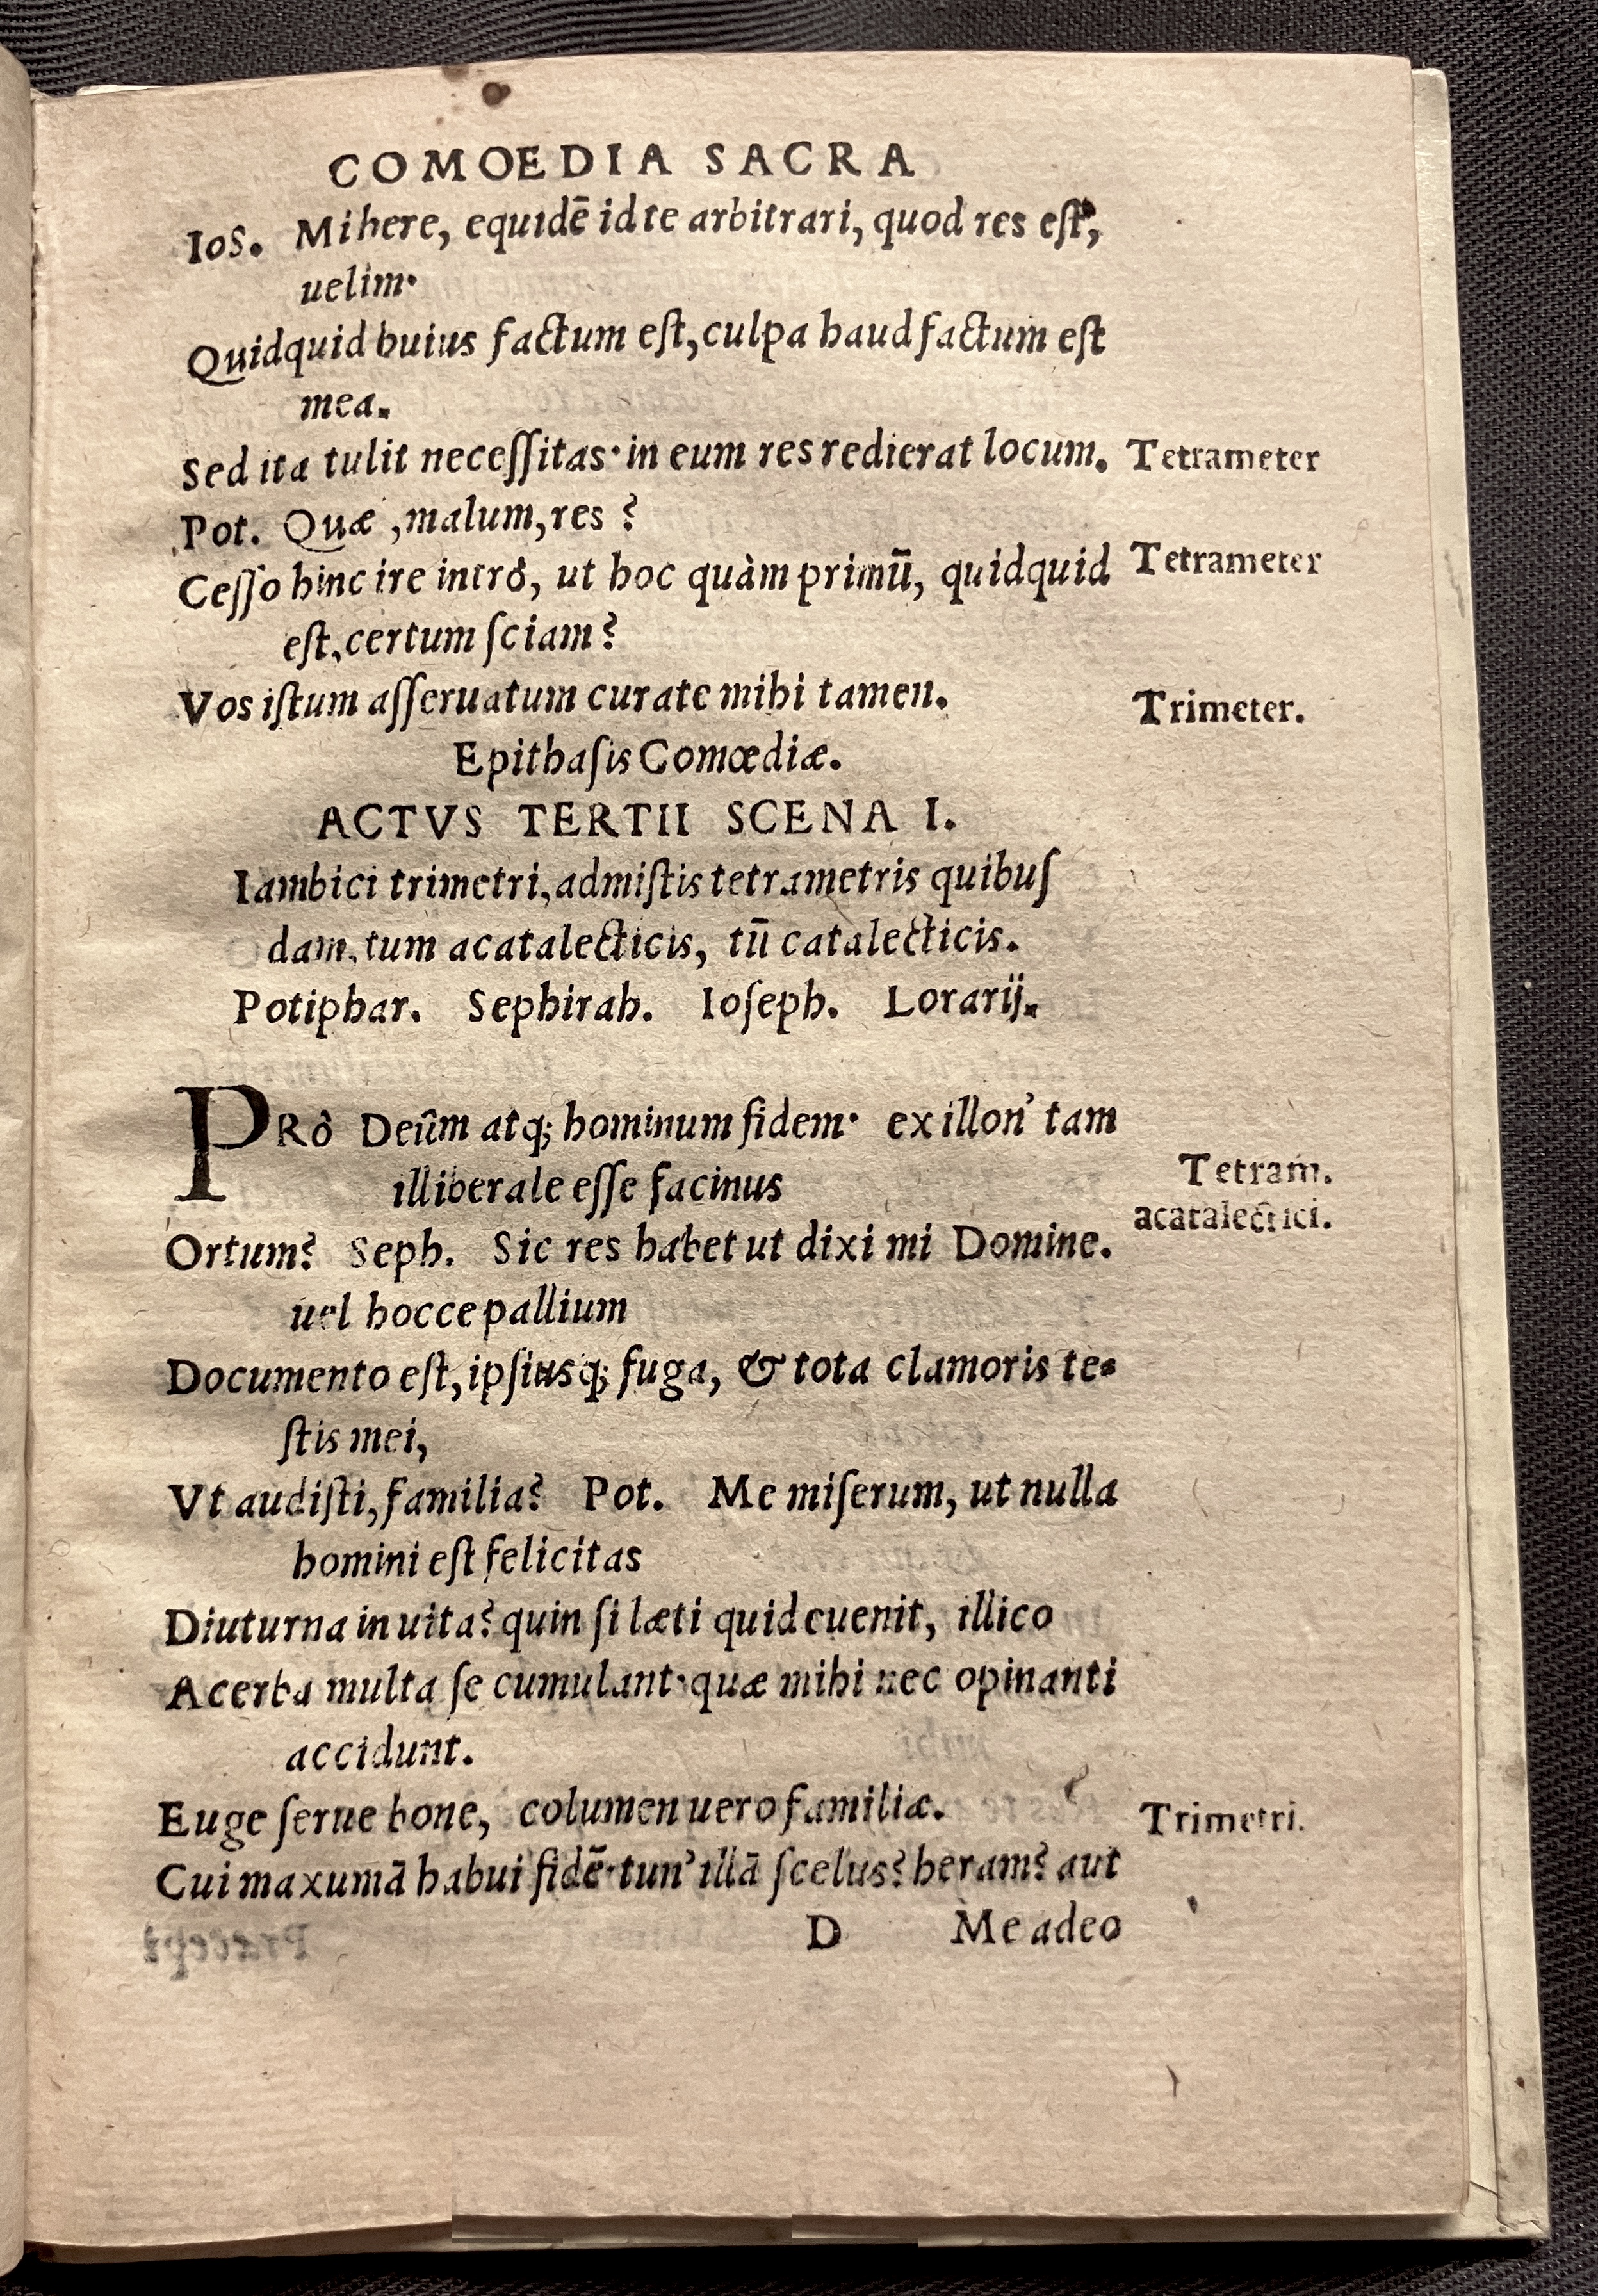 COMOEDIA SACRA
Ios. Mi here, equidē id te arbitrari, quod res est,
uelim·
Quidquid huius factum est, culpa haud factum est
mea.
Sed ita tulit necessitas· in eum res redierat locum. Tetrameter
Pot. Quæ, malum, res?
Cesso hinc ire intrò, ut hoc quàm primū, quidquid Tetrameter
est, certum sciam?
Vos istum asseruatum curate mihi tamen. Trimeter.
Epithasis Comœdiæ.
ACTVS TERTII SCENA I.
Iambici trimetri, admistis tetrametris quibus
dam, tum acatalecticis, tū catalecticis.
Potiphar. Sephirah. Ioseph. Lorarij.
PRô Deûm atq; hominum fidem· ex illon' tam
illiberale esse facinus
Tetram.
acatalectici.
Ortum? Seph. Sic res habet ut dixi mi Domine.
uel hocce pallium
Documento est, ipsiusq; fuga, & tota clamoris te-
stis mei,
Vt audisti, familia? Pot. Me miserum, ut nulla
homini est felicitas
Diuturna in uita? quin si læti quid euenit, illico
Acerba multa se cumulant· quæ mihi nec opinanti
accidunt.
Euge serue bone, columen uero familiæ. Trimetri.
Cui maxumā habui fidē· tun' illā scelus? heram? aut
D Me adeo